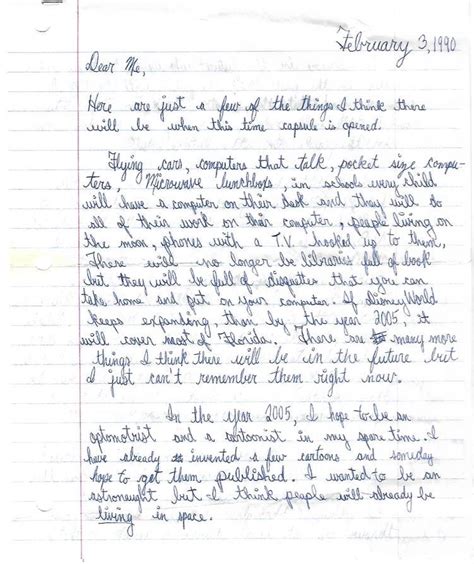 February 3, 1990
Dear Me,
Here are just a few of the things I think there
will be when this time capsule is opened.
Flying cars, computers that talk, pocket size compu-
ters, Microwave lunchboxs, in schools every child
will have a computer on their desk and they will do
all of their work on their computer, people living on
the moon, phones with a T.V. hooked up to them,
There will no longer be libraries full of book
but they will be full of disquettes that you can
take home and put on your computer. If DisneyWorld
keeps expanding, then by the year 2005, it
will cover most of Florida. There are many more
things I think there will be in the future but
I just can't remember them right now.
In the year 2005, I hope to be an
optomotrist and a cartoonist in my spare time. I
have already invented a few cartoons and someday
hope to get them published. I wanted to be an
astronaught but I think people will already be
living in space.